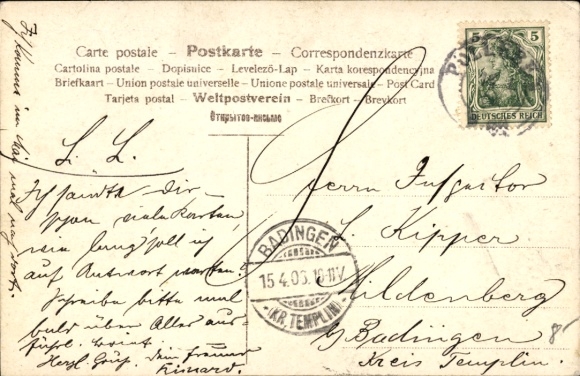 Carte postale – Postkarte – Correspondenzkarte
Cartolina postale – Dopisnice – Levelező-Lap – Karta korespondencyjna
Briefkaart – Union postale universelle – Unione postale universale – Post Card
Tarjeta postal – Weltpostverein – Brefkort – Brevkort
Открытое письмо
5 5
DEUTSCHES REICH
Ich komme im Mai mal nach dort.
L. L.
Ich sandte Dir
schon viele Karten,
wie lang soll ich
auf Antwort warten?
Schreibe bitte mal
bald über Alles aus-
führl.
Herzl. Gruß, Dein Freund
Herrn
L. Kipper
Mildenberg
b/ Badingen
Kreis Templin.
BADINGEN
15.4.05. 10-11V
(KR. TEMPLIN)